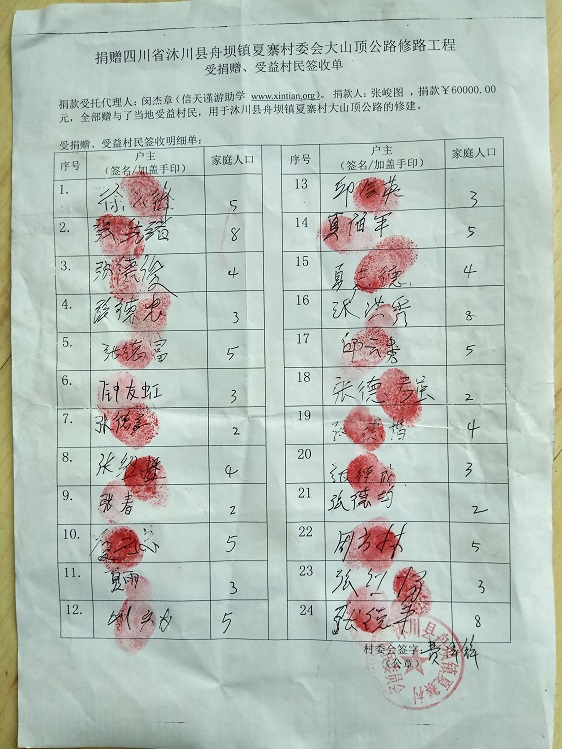 捐赠四川省沐川县舟坝镇夏寨村委会大山顶公路修路工程
受捐赠、受益村民签收单
捐款受托代理人：闵杰章（信天谨游助学 www.xintian.org）。捐款人：张峻图，捐款￥60000.00
元，全部赠与了当地受益村民，用于沐川县舟坝镇夏寨村大山顶公路的修建。
受捐赠、受益村民签收明细单：
序号 户主（签名/加盖手印） 家庭人口 序号 户主（签名/加盖手印） 家庭人口
1. 5
2. 8
3. 张德俊 4
4. 张德忠 3
5. 张德富 5
6. 钟友虹 3
7. 2
8. 4
9. 张春 2
10. 5
11. 夏雨 3
12. 5
13 3
14 夏伯军 5
15 夏德 4
16 张洪秀 8
17 邱云秀 5
18 张德强 2
19 4
20 3
21 张德 2
22 5
23 张红 3
24 8
村委会签字
（公章）
川县舟坝镇夏寨村